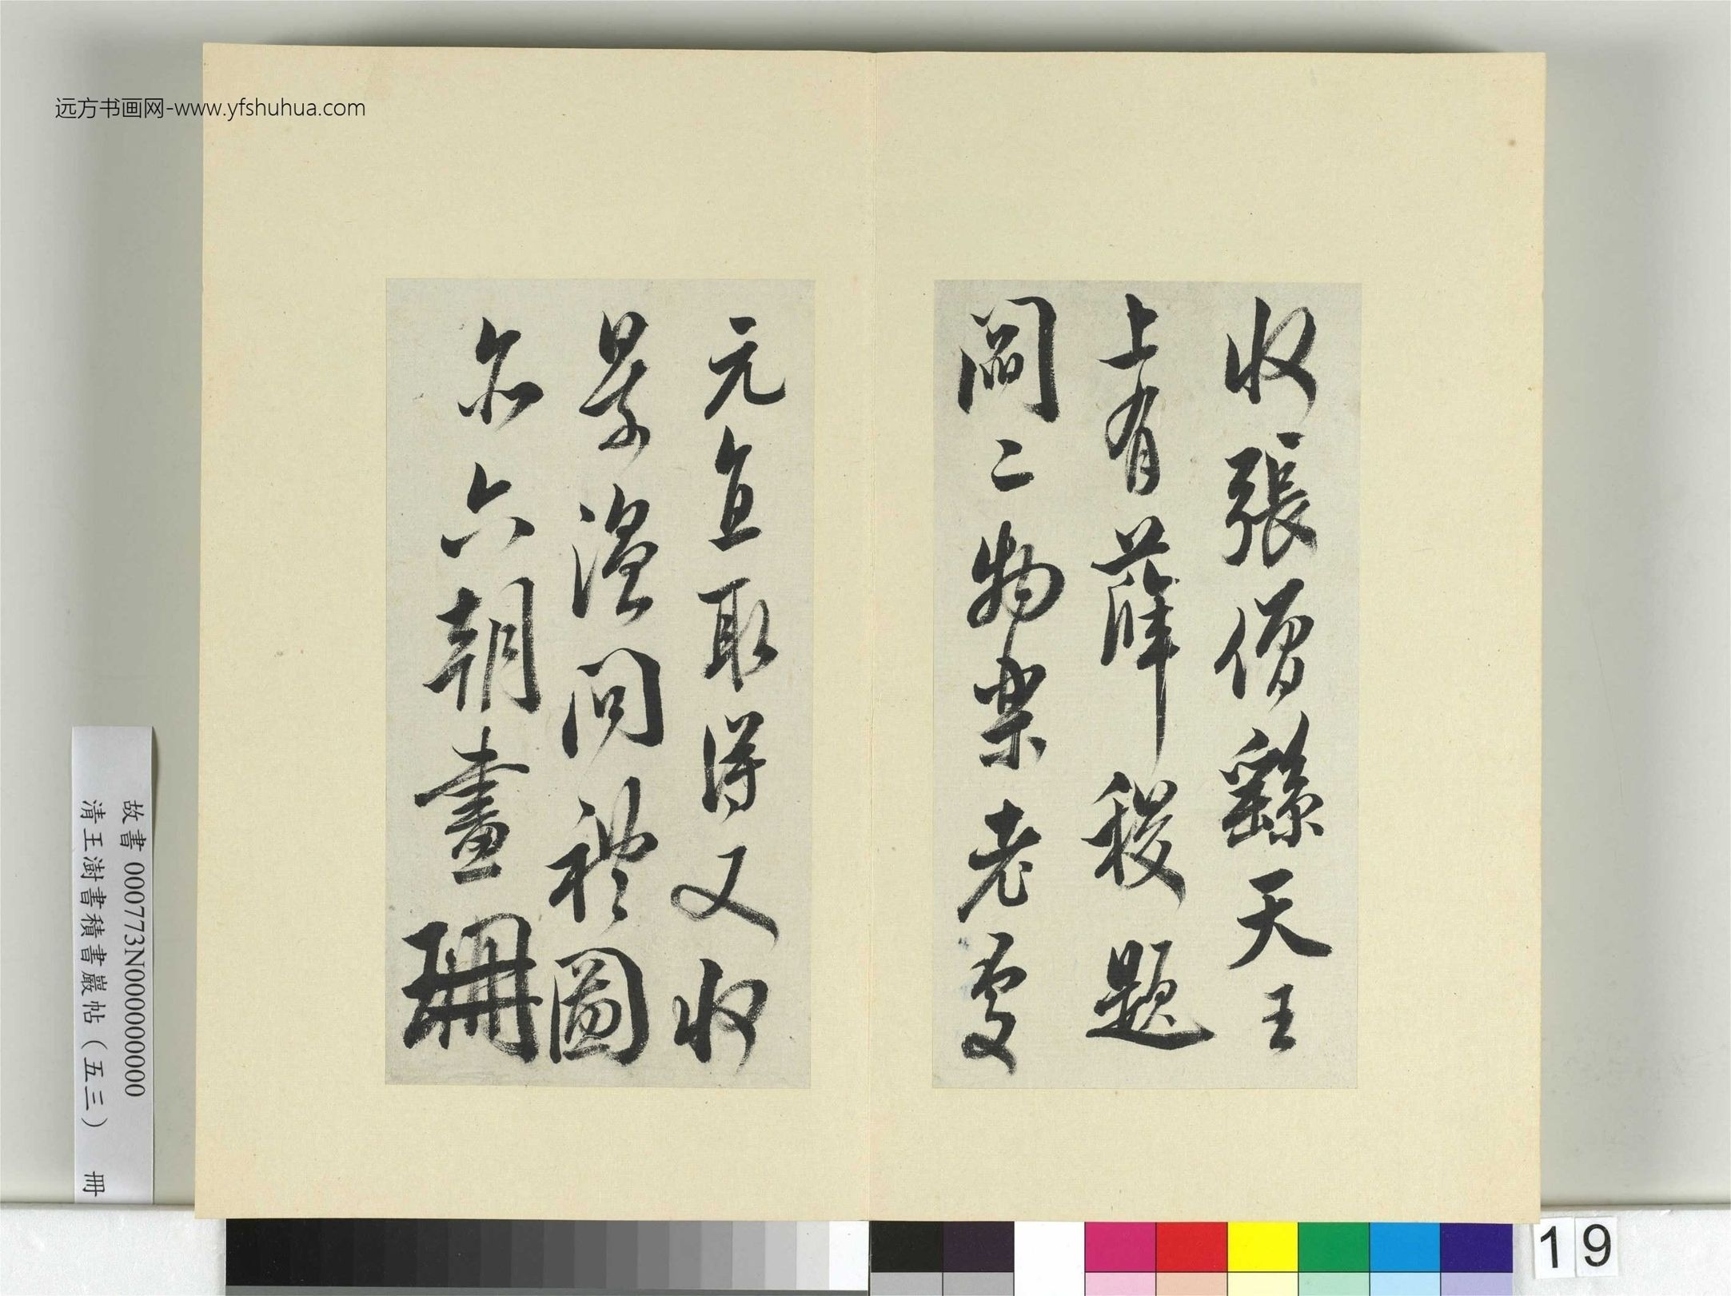 远方书画网-www.yfshuhua.com
收張僧繇天王
上有薛稷題
閻二物楽老處
元直取得又收
景溫問禮圖
亦六朝畫珊
故書 000773N000000000
清王澍書積書巖帖（五三） 冊
19